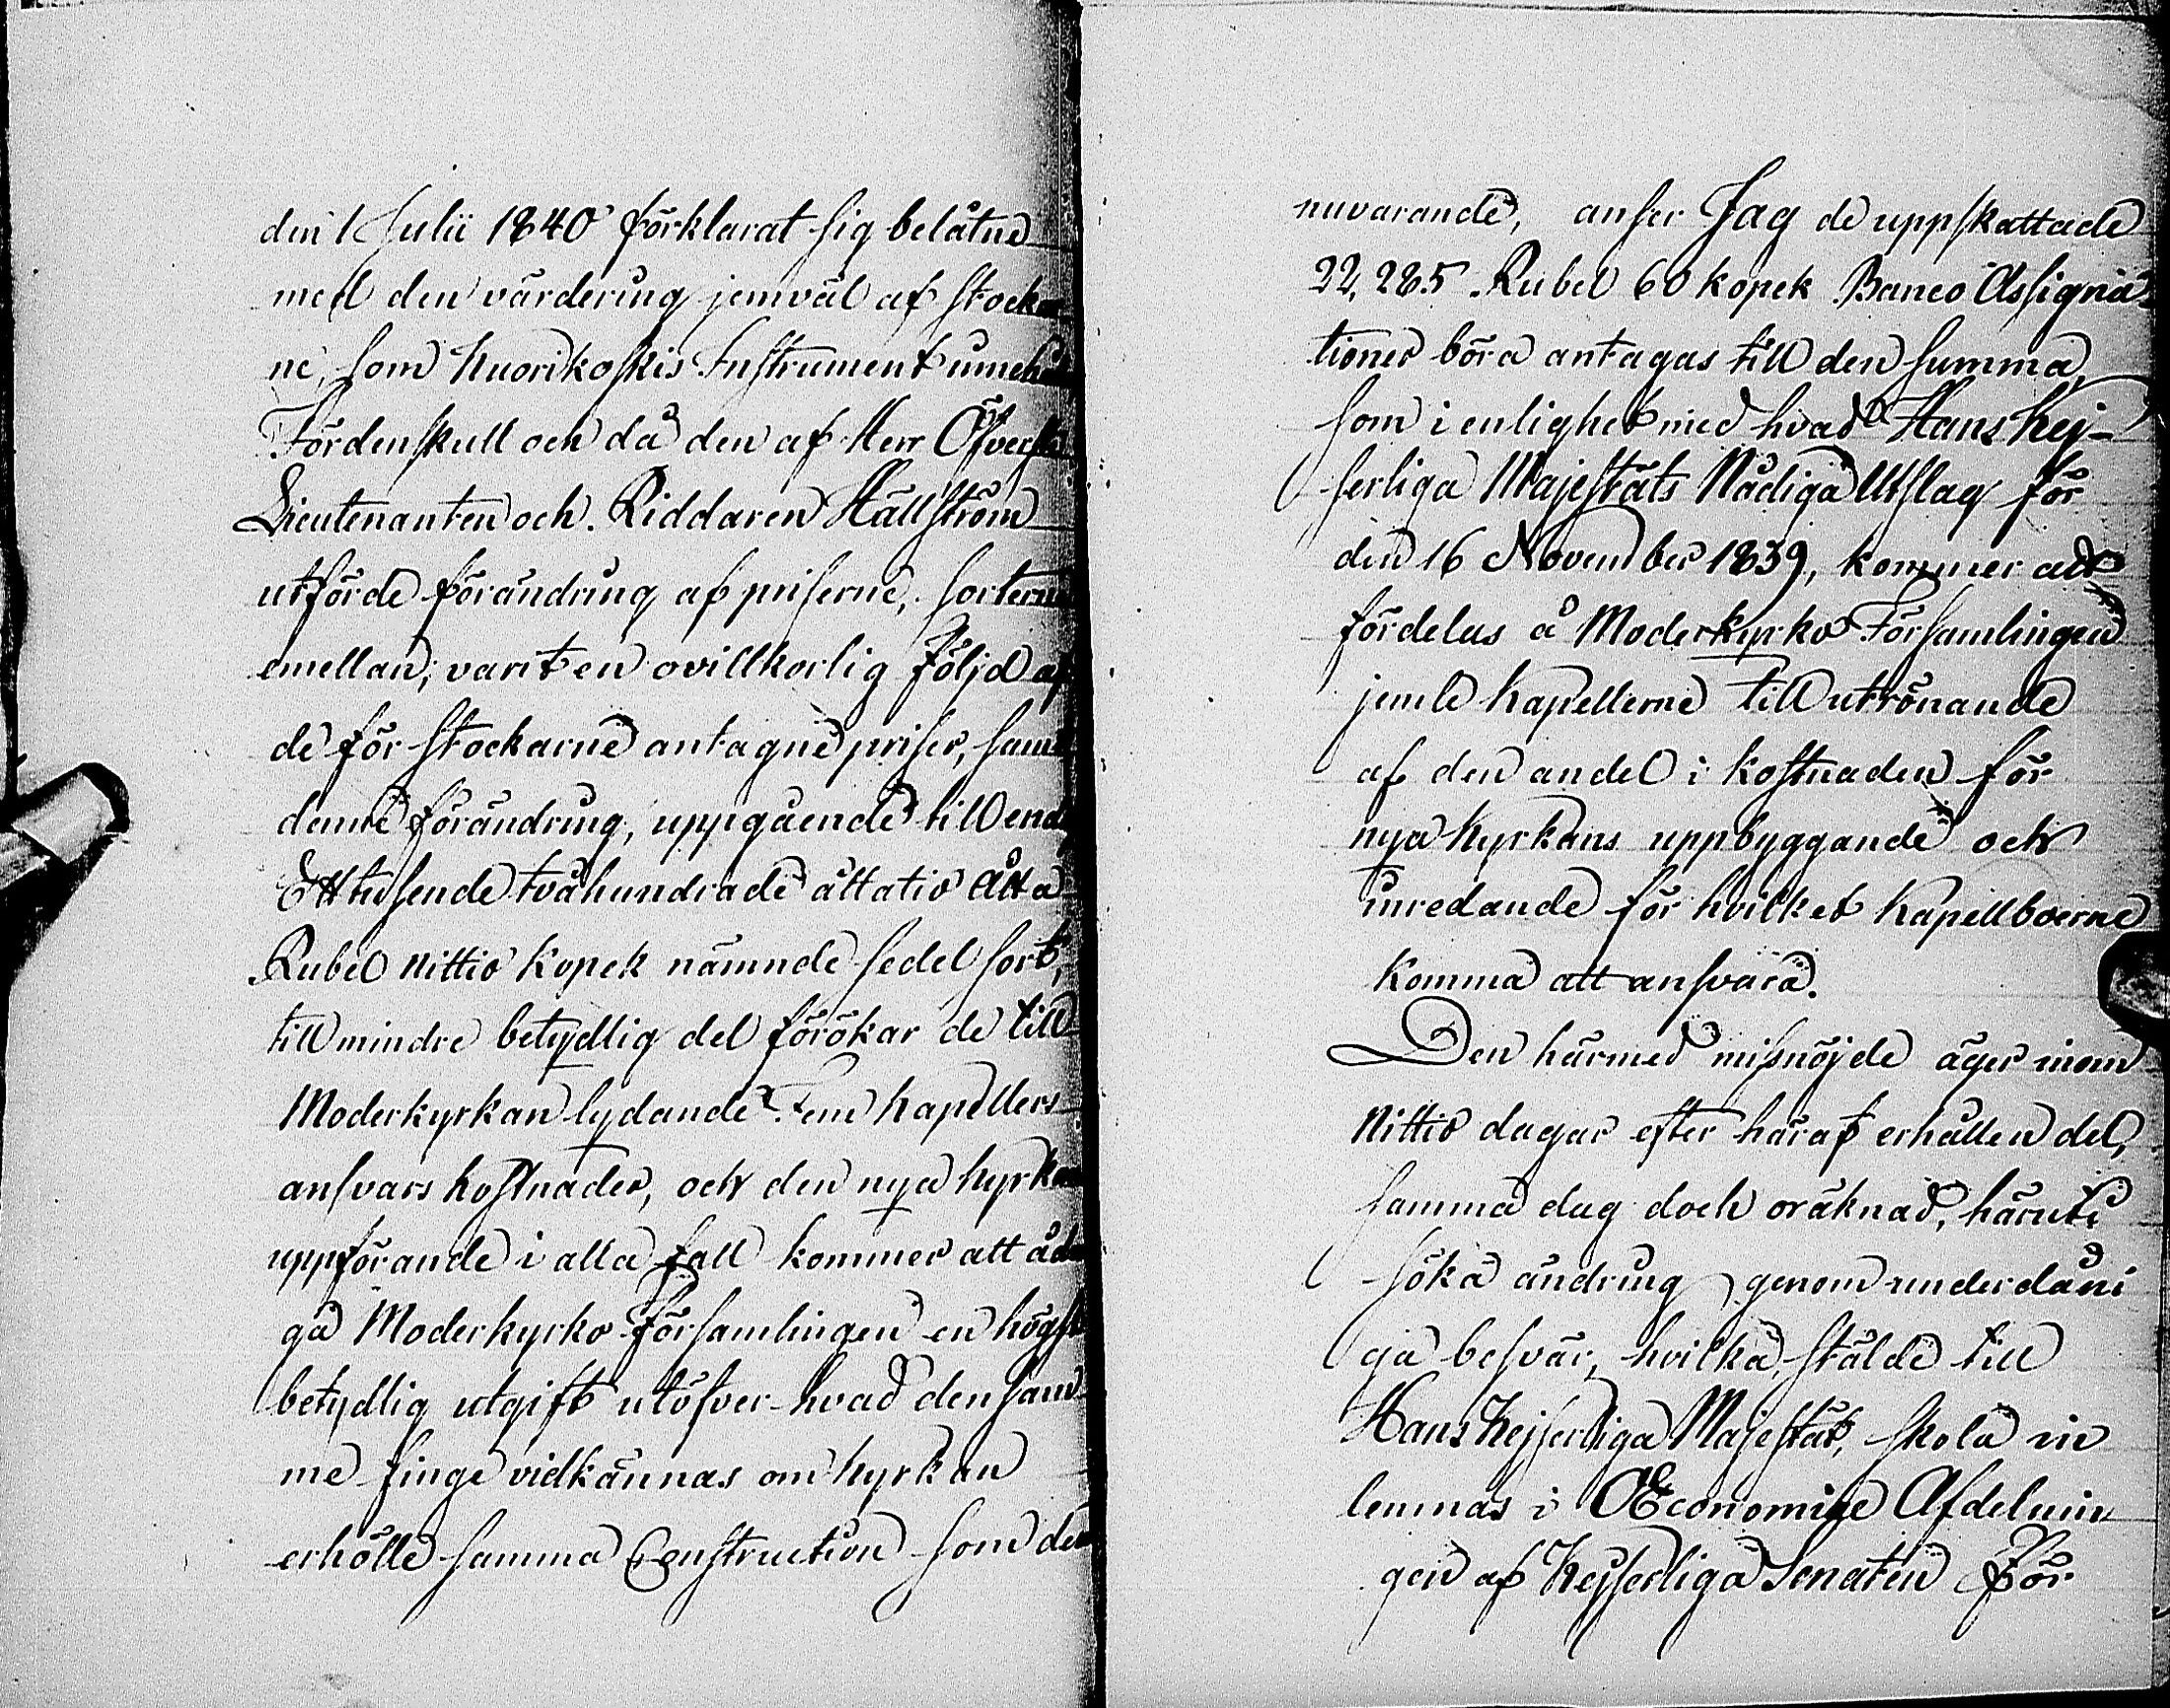 den 1 Julii 1840 förklarat sig belåtne
med den värdering jemväl af stockar
ne, som Kuorikoskis Instrument innehåll
Fördenskull och då den af Herr Öfverste
Lieutenanten och Riddaren Hällström
utförde förändring af priserne, sorterne
emellan, varit en ovillkorlig följd af
de för stockarne antagne priser, samt
denne förändring, uppgående till endast
Ett tusende tvåhundrade åttatio åtta
Rubel nittio kopek nämnde sedel sort,
till mindre betydlig del förökar de till
Moderkyrkan lydande Fem kapellers
ansvars kostnader, och den nya kyrkans
uppförande i alla fall kommer att ådra
ga Moderkyrko församlingen en högst
betydlig utgift utöfver hvad den sam
me finge vidkännas om kyrkan
erhölle samma Construction som den
nuvarande, anser Jag de uppskattade
22,285 Rubel 60 kopek Banco Assigna
tioner böra antagas till den summa,
som i enlighet med hvad Hans Kej-
serliga Majestäts Nådiga Utslag för
den 16 November 1839, kommer att
fördelas å Moderkyrko Församlingen
jemte kapellerne till utrönande
af den andel i kostnaden för
nya kyrkans uppbyggande och
inredande för hvilket kapellboerne
komma att ansvara.
Den härmed missnöjde äger inom
Nittio dagar efter häraf erhållen del,
samma dag doch oräknad, häruti
söka ändring genom underdåni
ga besvär, hvilka, stälde till
Hans Kejserliga Majestät, skola in
lemnas i Œconomiæ Afdelnin
gen af Kejserliga Senaten för